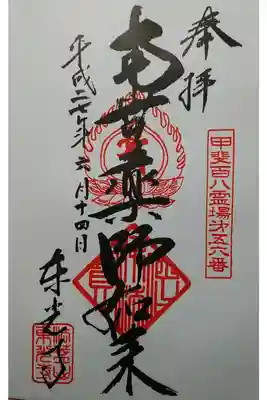 奉拝
甲斐百八霊場第五六番
南無薬師如来
平成二七年六月十四日
東光寺